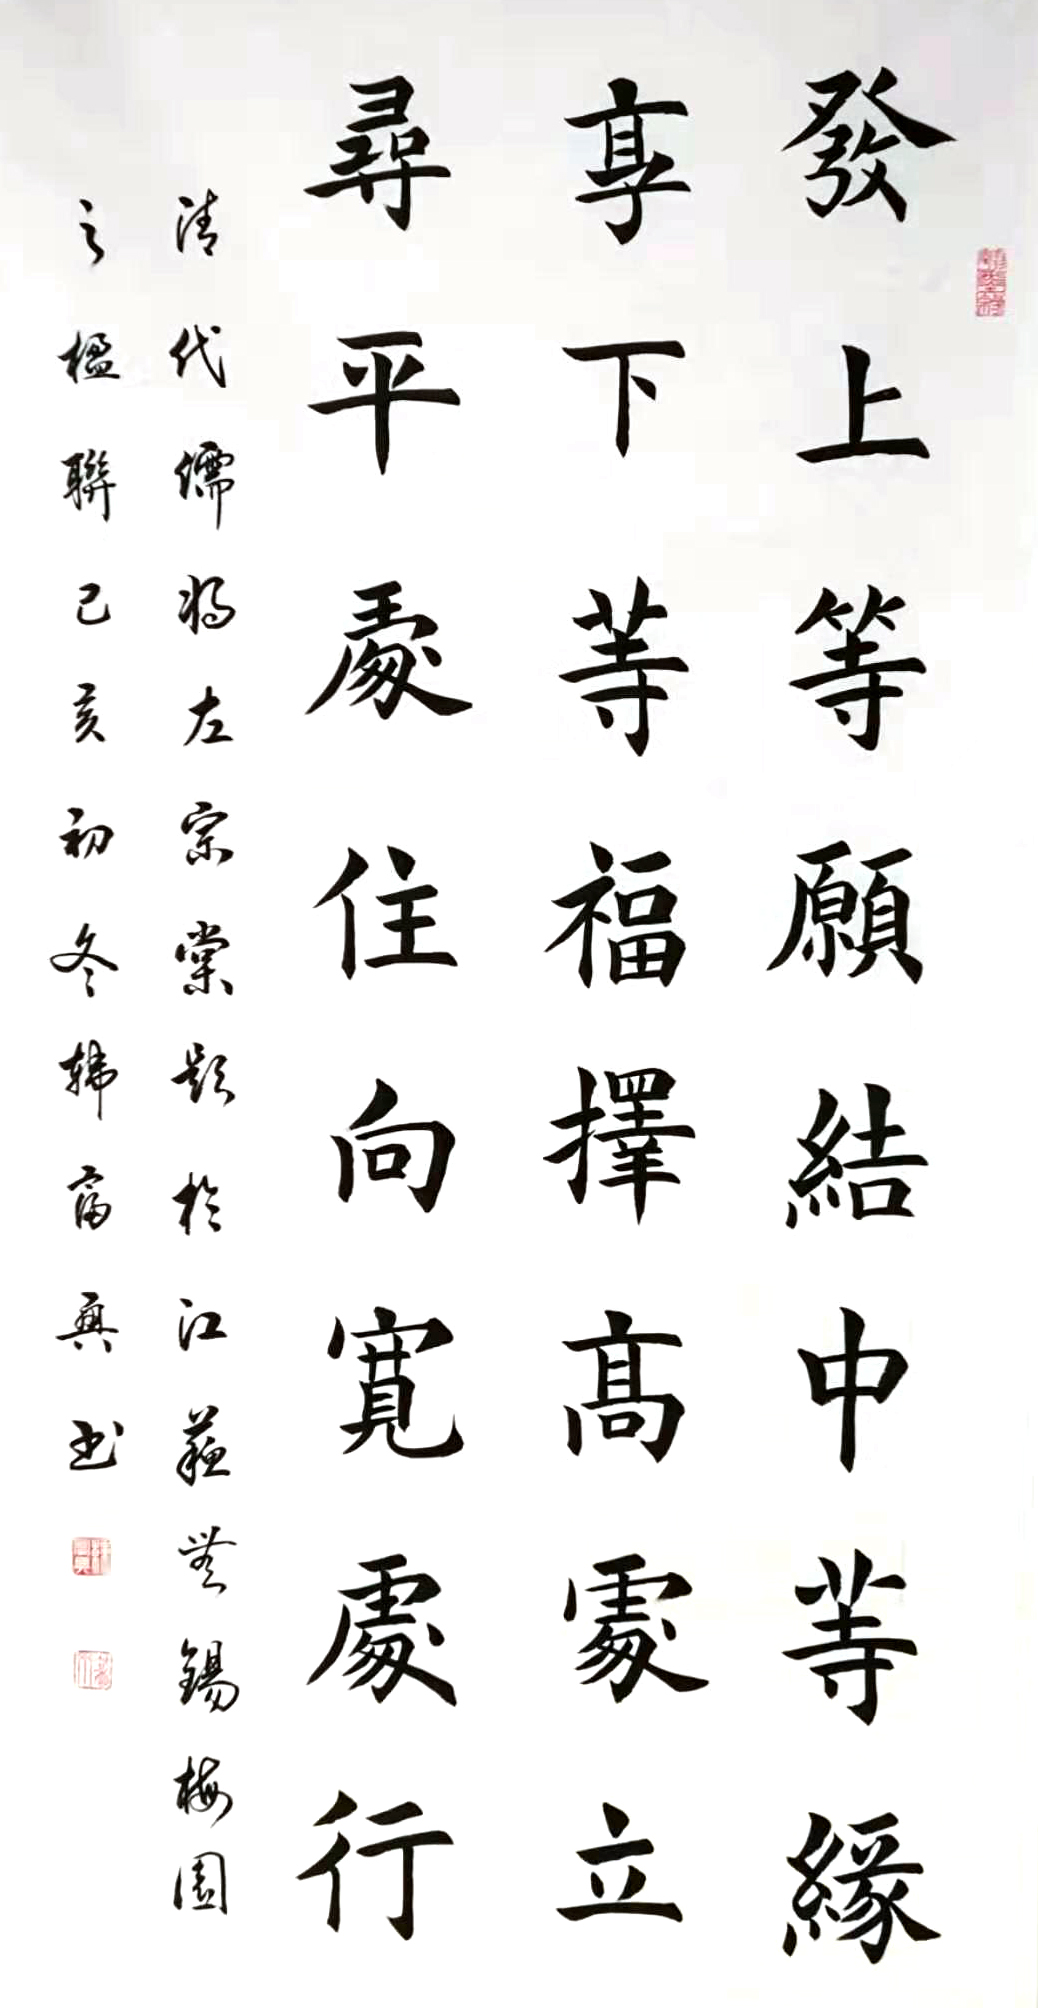 發上等願結中等緣
享下等福擇高處立
尋平處住向寬處行
清代儒將左宗棠題於江蘇無錫梅園
之楹聯己亥初冬韩富興书